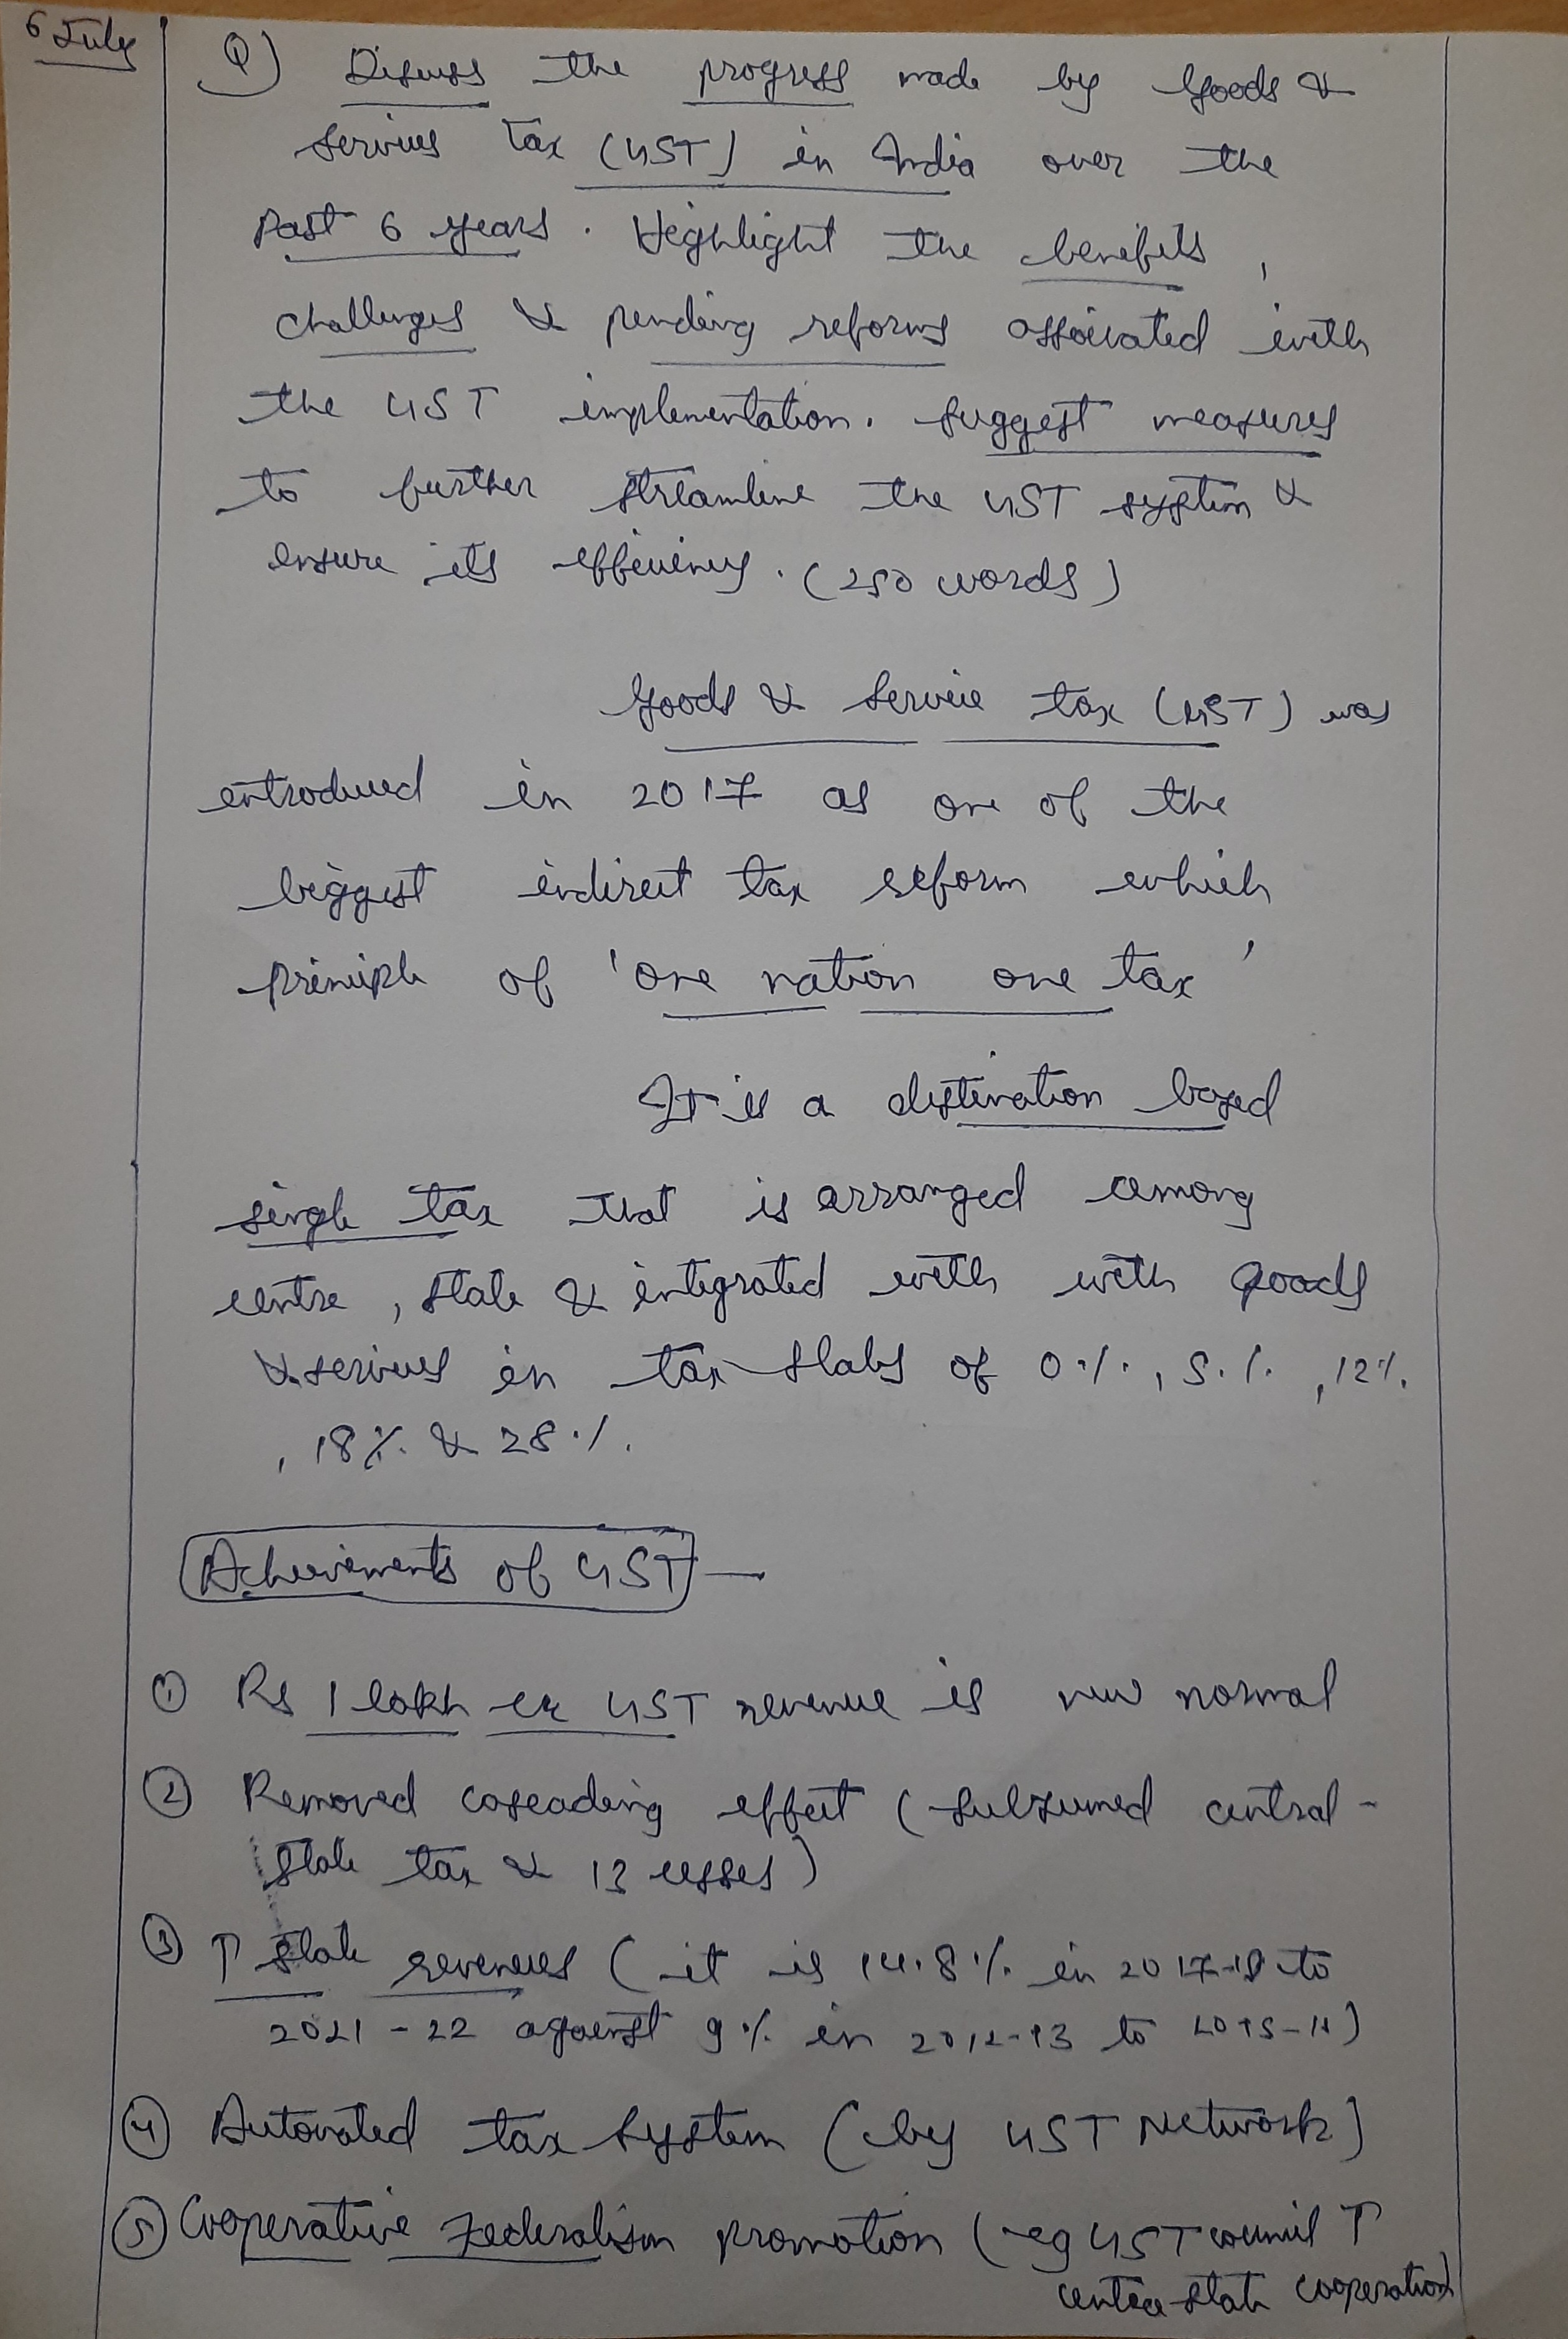 6 July
Q) Discuss the progress made by Goods &
Services Tax (GST) in India over the
Past 6 years. Highlight the benefits,
challenges & pending reforms associated with
the GST implementation. Suggest measures
to further streamline the GST system &
ensure its efficiency. (250 words)
Goods & Service tax (GST) was
introduced in 2017 as one of the
biggest indirect tax reform which
principle of 'one nation one tax'
It is a destination based
single tax that is arranged among
centre, state & integrated with with goods
& services in tax slabs of 0%, 5%, 12%
, 18% & 28%.
Achievements of GST —
① Rs 1 lakh cr GST revenue is new normal
② Removed cascading effect (subsumed central-
state tax & 13 cesses)
③ ↑ state revenues (it is 14.8% in 2017-18 to
2021-22 against 9% in 2012-13 to
④ Automated tax system (by GST Network)
⑤ Cooperative Federalism promotion (eg GST council ↑
centre-state cooperation)